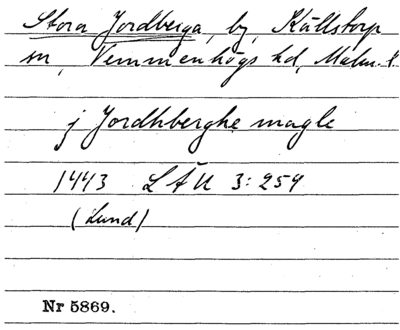 Stora Jordberga, by, Källstorp
sn, Vemmenhögs hd, Malm. l.
j Jordhberghe magle
1443 LÄU 3:259
(Lund)
Nr 5869.